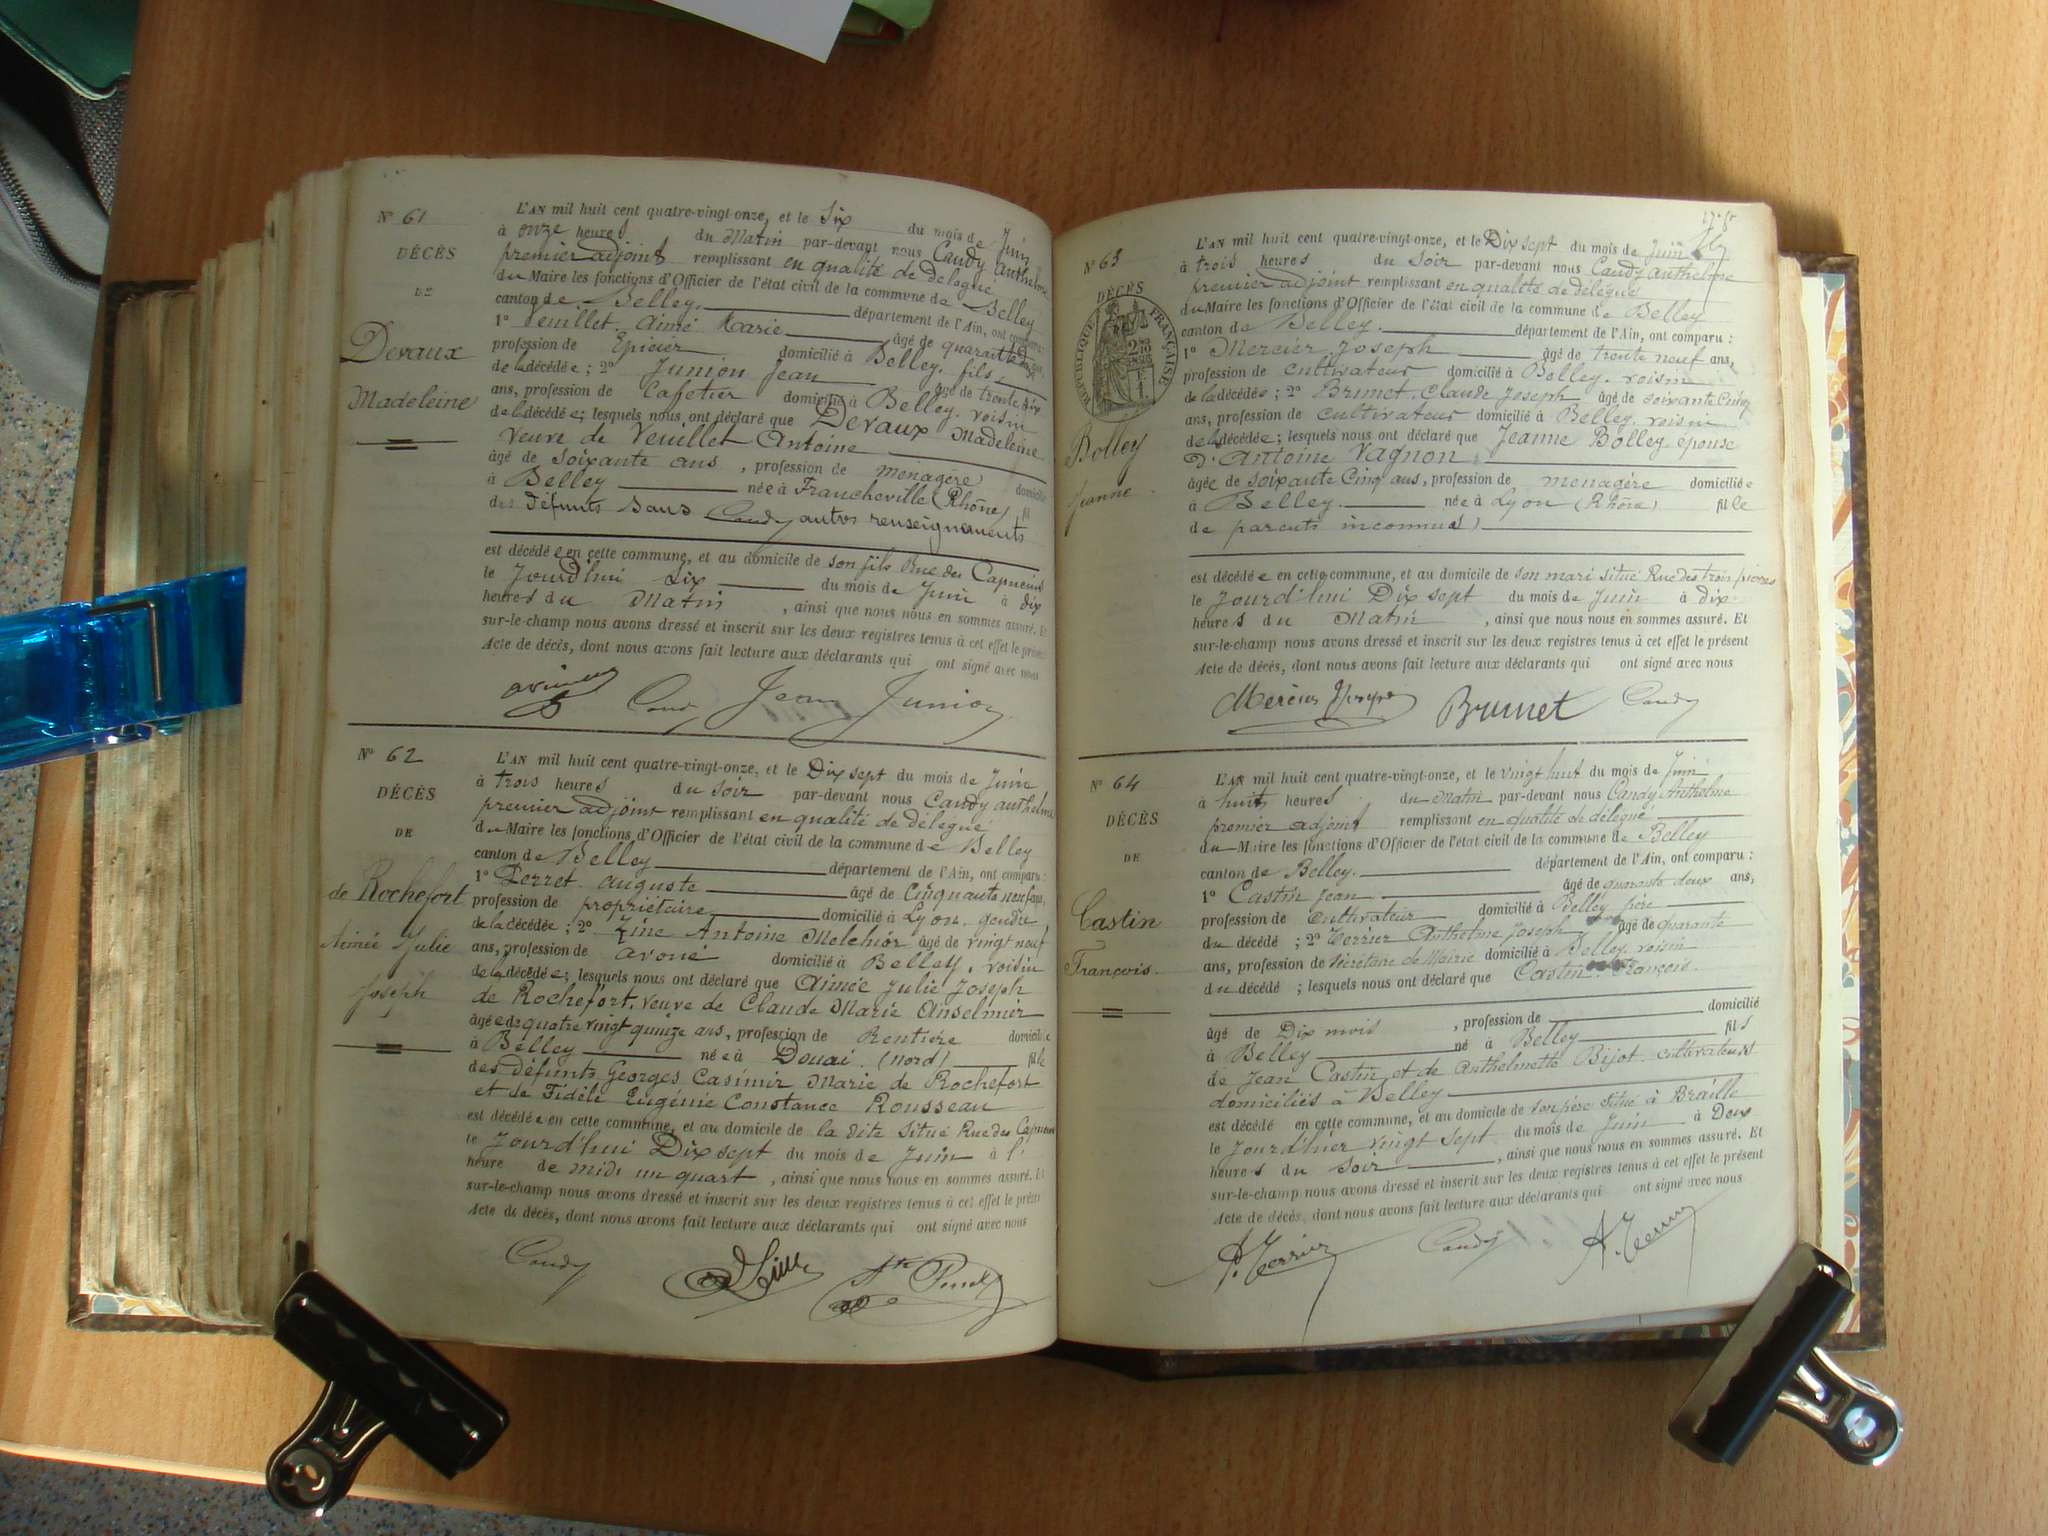 N° 61
DÉCÈS
DE
Devaux
Madeleine
L'AN mil huit cent quatre-vingt-onze, et le Six du mois de Juin
à onze heures du Matin par-devant nous Candy Anthelme
premier adjoint remplissant en qualité de délégué
du Maire les fonctions d'Officier de l'état civil de la commune de Belley
canton de Belley. département de l'Ain, ont comparu :
1° Veuillet Aimé Marie âgé de quarante
profession de Epicier domicilié à Belley. fils
de la décédée ; 2° Junion Jean âgé de trente six
ans, profession de Cafetier domicilié à Belley. voisin
de la décédée ; lesquels nous ont déclaré que Devaux Madeleine
Veuve de Veuillet Antoine
âgé de soixante ans , profession de menagère domicilié
à Belley née à Francheville (Rhône) fil
des défunts Sans Candy autres renseignements
est décédée en cette commune, et au domicile de son fils Rue des Capucins
le Jourd'hui Six du mois de Juin à dix
heures du Matin , ainsi que nous nous en sommes assuré. Et
sur-le-champ nous avons dressé et inscrit sur les deux registres tenus à cet effet le présent
Acte de décès, dont nous avons fait lecture aux déclarants qui ont signé avec nous
Candy Jean Junion
N° 62
DÉCÈS
DE
de Rochefort
Aimée Julie
Joseph
L'AN mil huit cent quatre-vingt-onze, et le Dix sept du mois de Juin
à trois heures du soir par-devant nous Candy anthelme
premier adjoint remplissant en qualité de délégué
du Maire les fonctions d'Officier de l'état civil de la commune de Belley
canton de Belley département de l'Ain, ont comparu :
1° Perret auguste âgé de Cinquante neuf ans,
profession de propriétaire domicilié à Lyon gendre
de la décédée ; 2° Antoine Melchior âgé de vingt neuf
ans, profession de avoué domicilié à Belley. voisin
de la décédée ; lesquels nous ont déclaré que Aimée Julie Joseph
de Rochefort, veuve de Claude Marie Anselmier
âgée de quatre vingt quinze ans, profession de Rentière domicilié
à Belley née à Douai (Nord) fille
des défunts Georges Casimir Marie de Rochefort
et de Fidèle Eugénie Constance Rousseau
est décédée en cette commune, et au domicile de la dite situé Rue des Capucins
le Jourd'hui Dix sept du mois de Juin à l'
heure de midi un quart , ainsi que nous nous en sommes assuré. Et
sur-le-champ nous avons dressé et inscrit sur les deux registres tenus à cet effet le présent
Acte de décès, dont nous avons fait lecture aux déclarants qui ont signé avec nous
Candy
N° 63
DÉCÈS
RÉPUBLIQUE FRANÇAISE
Bolley
Jeanne
L'AN mil huit cent quatre-vingt-onze, et le Dix sept du mois de Juin
à trois heures du soir par-devant nous Candy anthelme
premier adjoint remplissant en qualité de délégué
du Maire les fonctions d'Officier de l'état civil de la commune de Belley
canton de Belley. département de l'Ain, ont comparu :
1° Mercier Joseph âgé de trente neuf ans,
profession de cultivateur domicilié à Belley. voisin
de la décédée ; 2° Brunet Claude Joseph âgé de soixante Cinq
ans, profession de cultivateur domicilié à Belley. voisin
de la décédée ; lesquels nous ont déclaré que Jeanne Bolley. épouse
d'Antoine Vagnon
âgée de soixante Cinq ans, profession de menagère domiciliée
à Belley. née à Lyon (Rhône) fille
de parents inconnus
est décédée en cette commune, et au domicile de son mari situé Rue des trois pierres
le Jourd'hui Dix sept du mois de Juin à dix
heures du Matin , ainsi que nous nous en sommes assuré. Et
sur-le-champ nous avons dressé et inscrit sur les deux registres tenus à cet effet le présent
Acte de décès, dont nous avons fait lecture aux déclarants qui ont signé avec nous
Mercier Joseph Brunet Candy
N° 64
DÉCÈS
DE
Castin
François.
L'AN mil huit cent quatre-vingt-onze, et le vingt huit du mois de Juin
à huit heures du Matin par-devant nous Candy Anthelme
premier adjoint remplissant en qualité de délégué
du Maire les fonctions d'Officier de l'état civil de la commune de Belley
canton de Belley. département de l'Ain, ont comparu :
1° Castin Jean âgé de quarante deux ans,
profession de Cultivateur domicilié à Belley père
du décédé ; 2° Terrier Anthelme Joseph âgé de quarante
ans, profession de secrétaire de Mairie domicilié à Belley. voisin
du décédé ; lesquels nous ont déclaré que Castin François.
domicilié
âgé de Dix mois , profession de
à Belley né à Belley fils
de Jean Castin et de Anthelmette Bijot cultivateurs
domiciliés à Belley
est décédé en cette commune, et au domicile de son père situé à Braille
le Jourd'hier vingt sept du mois de Juin à Deux
heures du soir , ainsi que nous nous en sommes assuré. Et
sur-le-champ nous avons dressé et inscrit sur les deux registres tenus à cet effet le présent
Acte de décès, dont nous avons fait lecture aux déclarants qui ont signé avec nous
A. Terrier Candy A. Terrier